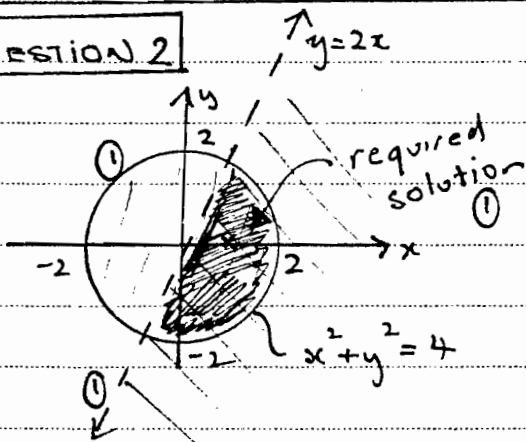 ESTION 2
y=2x
y
2
①
required
solution
①
x
-2
2
-2
x²+y²=4
①